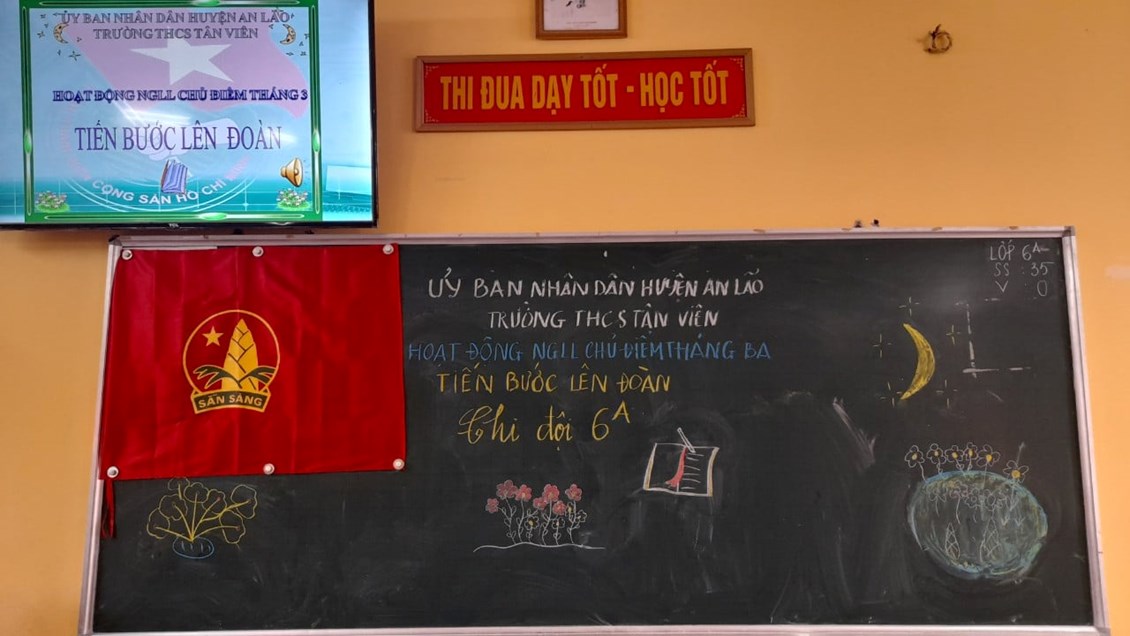 ỦY BAN NHÂN DÂN HUYỆN AN LÃO
TRƯỜNG THCS TÂN VIÊN
HOẠT ĐỘNG NGLL CHỦ ĐIỂM THÁNG 3
TIẾN BƯỚC LÊN ĐOÀN
CỘNG SẢN HỒ CHÍ
THI ĐUA DẠY TỐT - HỌC TỐT
SẴN SÀNG
ỦY BAN NHÂN DÂN HUYỆN AN LÃO
TRƯỜNG THCS TÂN VIÊN
HOẠT ĐỘNG NGLL CHỦ ĐIỂM THÁNG BA
TIẾN BƯỚC LÊN ĐOÀN
Chi đội 6A
LỚP 6A
SS : 35
V : 0